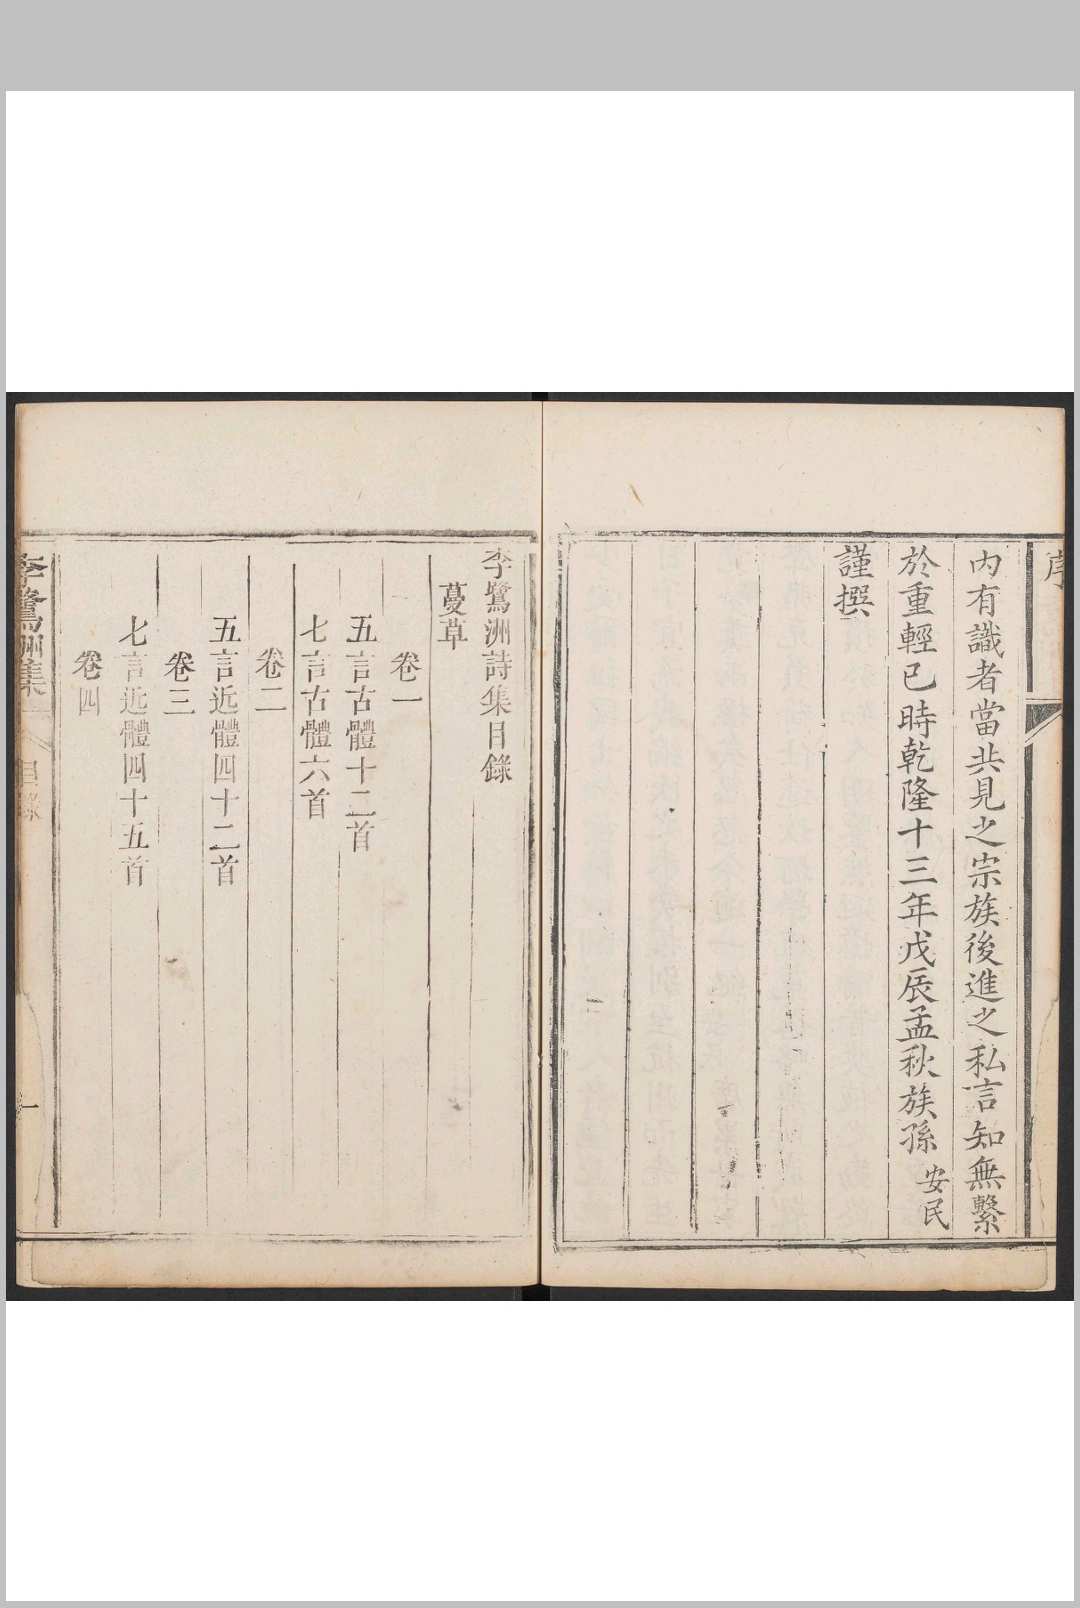 序
內有識者當共見之宗族後進之私言知無繫
於重輕已時乾隆十三年戊辰孟秋族孫安民
謹撰
李鷺洲詩集目錄
蔓草
卷一
五言古體十二首
七言古體六首
卷二
五言近體四十二首
卷三
七言近體四十五首
卷四
李鷺洲集
目錄
一